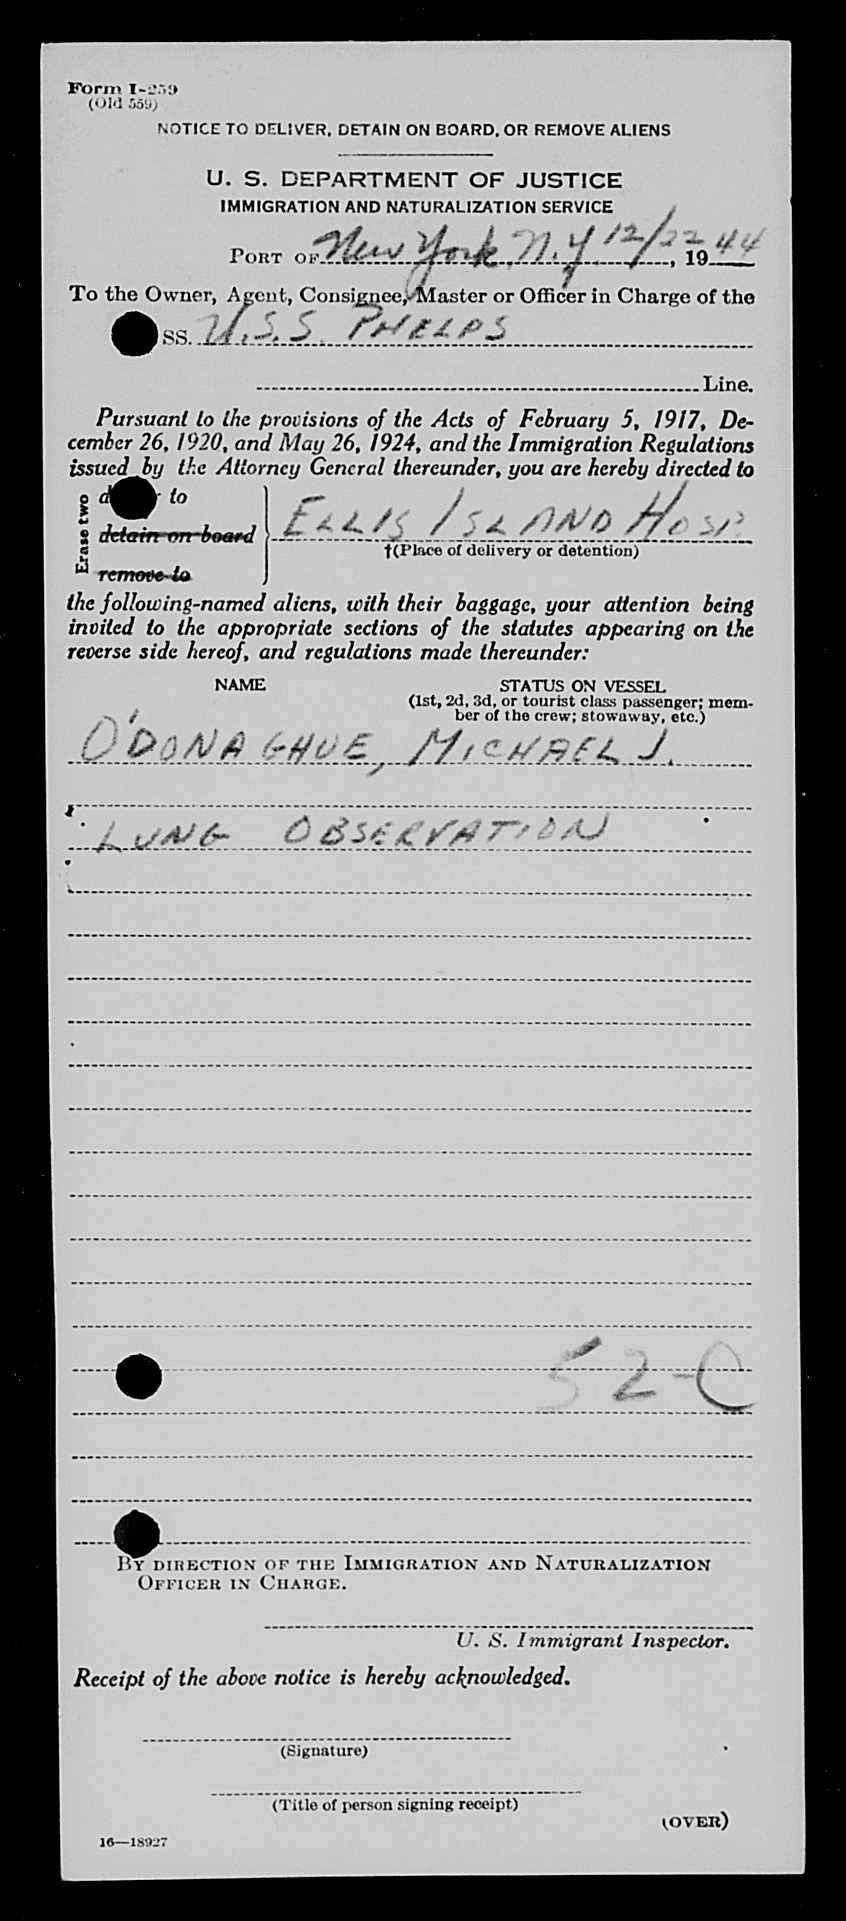 Form I-259
(Old 559)
NOTICE TO DELIVER, DETAIN ON BOARD, OR REMOVE ALIENS
U. S. DEPARTMENT OF JUSTICE
IMMIGRATION AND NATURALIZATION SERVICE
PORT OF New York, N.Y. 12/22, 1944
To the Owner, Agent, Consignee, Master or Officer in Charge of the
SS. U.S.S. PHELPS
Line.
Pursuant to the provisions of the Acts of February 5, 1917, De-
cember 26, 1920, and May 26, 1924, and the Immigration Regulations
issued by the Attorney General thereunder, you are hereby directed to
Erase two
to
detain on board
remove to
ELLIS ISLAND HOSP.
†(Place of delivery or detention)
the following-named aliens, with their baggage, your attention being
invited to the appropriate sections of the statutes appearing on the
reverse side hereof, and regulations made thereunder:
NAME STATUS ON VESSEL
(1st, 2d, 3d, or tourist class passenger; mem-
ber of the crew; stowaway, etc.)
O'DONAGHUE, MICHAEL J.
LUNG OBSERVATION
52-C
BY DIRECTION OF THE IMMIGRATION AND NATURALIZATION
OFFICER IN CHARGE.
U. S. Immigrant Inspector.
Receipt of the above notice is hereby acknowledged.
(Signature)
(Title of person signing receipt)
(OVER)
16—18927